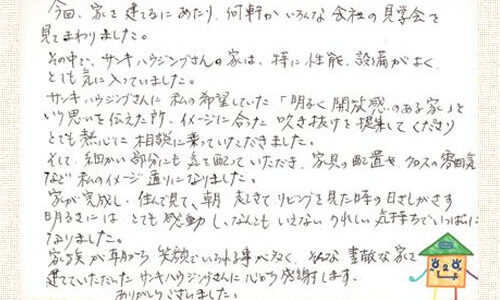 今回、家を建てるにあたり、何軒かいろんな会社の見学会を
見てまわりました。
その中で、サンキハウジングさんの家は、特に性能、設備がよく、
とても気に入っていました。
サンキハウジングさんに私の希望していた「明るく開放感のある家」と
いう思いを伝えた所、イメージに合った吹き抜けを提案してくださり
とても熱心に相談に乗っていただきました。
そして、細かい部分にも気を配っていただき、家具の配置や、クロスの雰囲気
など私のイメージ通りになりました。
家が完成し、住んで見て、朝起きてリビングを見た時の日ざしがさす
明るさには とても感動し、なんともいえないうれしい気持ちでいっぱいに
なりました。
家族が朝から笑顔でいられる事が多く、そんな素敵な家を
建てていただいたサンキハウジングさんに心から感謝します。
ありがとうございました。